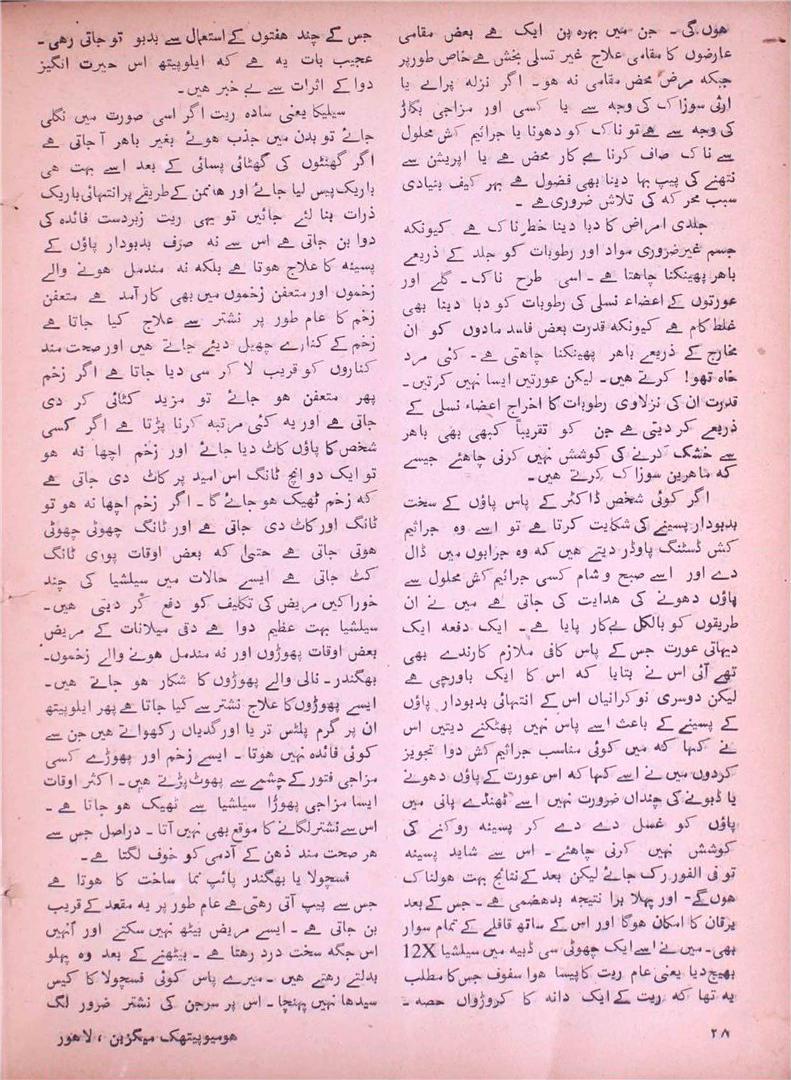 ھوں گی ۔ جن میں بہرہ پن ایک ہے بعض مقامی
عارضوں کا مقامی علاج غیر تسلی بخش ہے خاص طور پر
جبکہ مرض محض مقامی نہ ھو ۔ اگر نزلہ پرانے یا
ارثی سوزاک کی وجہ سے یا کسی اور مزاجی بگاڑ
کی وجہ سے ہے تو ناک کو دھونا یا جراثیم کش محلول
سے ناک صاف کرنا بے کار محض ہے یا اپریشن سے
نتھنے کی پیپ بہا دینا بھی فضول ہے بہر کیف بنیادی
سبب محرکہ کی تلاش ضروری ہے ۔
جلدی امراض کا دبا دینا خطرناک ہے کیونکہ
جسم غیر ضروری مواد اور رطوبات کو جلد کے ذریعے
باھر پھینکنا چاھتا ہے ۔ اسی طرح ناک ۔ گلے اور
عورتوں کے اعضاء نسلی کی رطوبات کو دبا دینا بھی
غلط کام ہے کیونکہ قدرت بعض فاسد مادوں کو ان
مخارج کے ذریعے باھر پھینکنا چاھتی ہے ۔ کئی مرد
خاہ تھو ! کرتے ھیں ۔ لیکن عورتیں ایسا نہیں کرتیں ۔
قدرت ان کی نزلاوی رطوبات کا اخراج اعضاء نسلی کے
ذریعے کر دیتی ہے جن کو تقریباً کبھی بھی باھر
سے خشک کرنے کی کوشش نہیں کرنی چاھئے جیسے
کہ ماھرین سوزاک کرتے ھیں ۔
اگر کوئی شخص ڈاکٹر کے پاس پاؤں کے سخت
بدبودار پسینے کی شکایت کرتا ہے تو اسے وہ جراثیم
کش ڈسٹنگ پاوڈر دیتے ھیں کہ وہ جرابوں میں ڈال
دے اور اسے صبح و شام کسی جراثیم کش محلول سے
پاؤں دھونے کی ھدایت کی جاتی ہے میں نے ان
طریقوں کو بالکل بےکار پایا ہے ۔ ایک دفعہ ایک
دیہاتی عورت جس کے پاس کافی ملازم کارندے بھی
تھے آئی اس نے بتایا کہ اس کا ایک باورچی ہے
لیکن دوسری نوکرانیاں اس کے انتہائی بدبودار پاؤں
کے پسینے کے باعث اسے پاس نہیں پھٹکنے دیتیں اس
نے کہا کہ میں کوئی مناسب جراثیم کش دوا تجویز
کردوں میں نے اسے کہا کہ اس عورت کے پاؤں دھونے
یا ڈبونے کی چنداں ضرورت نہیں اسے ٹھنڈے پانی میں
پاؤں کو غسل دے دے کر پسینہ روکنے کی
کوشش نہیں کرنی چاھئے ۔ اس سے شاید پسینہ
تو فی الفور رک جائے لیکن بعد کے نتائج بہت ھولناک
ھوں گے ۔ اور پہلا برا نتیجہ بدھضمی ہے ۔ جس کے بعد
یرقان کا امکان ھوگا اور اس کے ساتھ قافلے کے تمام سوار
بھی ۔ میں نے اسے ایک چھوٹی سی ڈبیہ میں سیلشیا 12X
بھیج دیا یعنی عام ریت کا پیسا ھوا سفوف جس کا مطلب
یہ تھا کہ ریت کے ایک دانہ کا کروڑواں حصہ ۔
جس کے چند ھفتوں کے استعمال سے بدبو تو جاتی رھی ۔
عجیب بات یہ ہے کہ ایلوپیتھ اس حیرت انگیز
دوا کے اثرات سے بے خبر ھیں ۔
سیلیکا یعنی سادہ ریت اگر اسی صورت میں نگلی
جائے تو بدن میں جذب ھوئے بغیر باھر آ جاتی ہے
اگر گھنٹوں کی گھٹائی پسائی کے بعد اسے بہت ھی
باریک پیس لیا جائے اور ھانمن کے طریقے پر انتہائی باریک
ذرات بنا لئے جائیں تو یہی ریت زبردست فائدہ کی
دوا بن جاتی ہے اس سے نہ صرف بدبودار پاؤں کے
پسینہ کا علاج ھوتا ہے بلکہ نہ مندمل ھونے والے
زخموں اور متعفن زخموں میں بھی کار آمد ہے متعفن
زخم کا عام طور پر نشتر سے علاج کیا جاتا ہے
زخم کے کنارے چھیل دیئے جاتے ھیں اور صحت مند
کناروں کو قریب لا کر سی دیا جاتا ہے اگر زخم
پھر متعفن ھو جائے تو مزید کٹائی کر دی
جاتی ہے اور یہ کئی مرتبہ کرنا پڑتا ہے اگر کسی
شخص کا پاؤں کاٹ دیا جائے اور زخم اچھا نہ ھو
تو ایک دو انچ ٹانگ اس امید پر کاٹ دی جاتی ہے
کہ زخم ٹھیک ھو جائے گا ۔ اگر زخم اچھا نہ ھو تو
ٹانگ اور کاٹ دی جاتی ہے اور ٹانگ چھوٹی چھوٹی
ھوتی جاتی ہے حتیٰ کہ بعض اوقات پوری ٹانگ
کٹ جاتی ہے ایسے حالات میں سیلشیا کی چند
خوراکیں مریض کی تکلیف کو دفع کر دیتی ھیں ۔
سیلشیا بہت عظیم دوا ہے دقی میلانات کے مریض
بعض اوقات پھوڑوں اور نہ مندمل ھونے والے زخموں ۔
بھگندر ۔ نالی والے پھوڑوں کا شکار ھو جاتے ھیں ۔
ایسے پھوڑوں کا علاج نشتر سے کیا جاتا ہے پھر ایلوپیتھ
ان پر گرم پلٹس تر یا اور گدیاں رکھواتے ھیں جن سے
کوئی فائدہ نہیں ھوتا ۔ ایسے زخم اور پھوڑے کسی
مزاجی فتور کے چشمے سے پھوٹ پڑتے ھیں ۔ اکثر اوقات
ایسا مزاجی پھوڑا سیلشیا سے ٹھیک ھو جاتا ہے ۔
اس سے نشتر لگانے کا موقع بھی نہیں آتا ۔ دراصل جس سے
ھر صحت مند ذھن کے آدمی کو خوف لگتا ہے ۔
فسچولا یا بھگندر پائپ نما ساخت کا ھوتا ہے
جس سے پیپ آتی رھتی ہے عام طور پر یہ مقعد کے قریب
بن جاتی ہے ۔ ایسے مریض بیٹھ نہیں سکتے اور انہیں
اس جگہ سخت درد رھتا ہے ۔ بیٹھنے کے بعد وہ پہلو
بدلتے رھتے ھیں ۔ میرے پاس کوئی فسچولا کا کیس
سیدھا نہیں پہنچا ۔ اس پر سرجن کی نشتر ضرور لگ
۲۸
ھومیوپیتھک میگزین ، لاھور